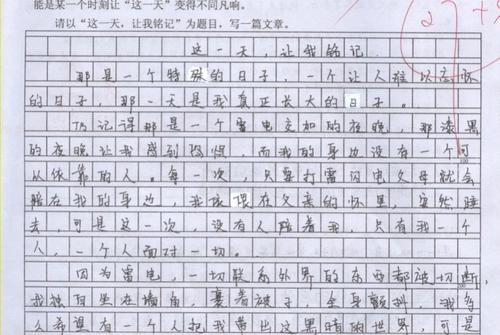 能是某一个时刻让“这一天”变得不同凡响。
请以“这一天，让我铭记”为题目，写一篇文章。
这一天，让我铭记
那是一个特殊的日子，一个让人难以忘怀
的日子，那一天是我真正长大的日子。
仍记得那是一个雷电交加的夜晚，那漆黑
的夜晚让我感到恐惧，而我的身边没有一个可
以依靠的人。每一次，只要打雷闪电父母就会
陪在我的身边，我依偎在父亲的怀里，安然睡
去，可是这一次，没有人陪着我，只有我一个
人，一个人面对一切。
因为雷电，一切联系外界的东西都被切断，
我独自坐在墙角，裹着被子，全身颤抖，我多
么希望有一个人把我带出这黑暗的世界，可是